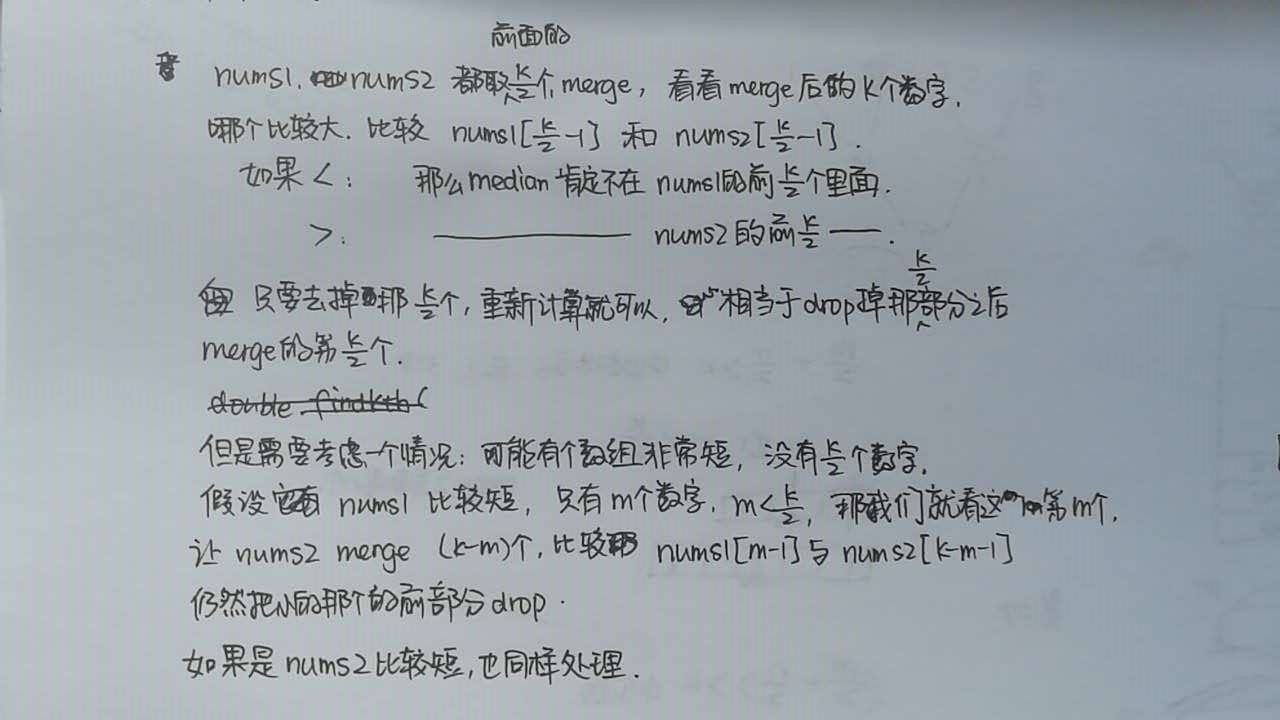 前面的
nums1. nums2 都取k/2个 merge, 看看merge后的k个数字.
哪个比较大. 比较 nums1[k/2-1] 和 nums2[k/2-1].
如果<: 那么median肯定不在nums1的前k/2个里面.
>: —— nums2的前k/2 ——.
只要去掉那k/2个, 重新计算就可以, 相当于drop掉那k/2部分之后
merge的第k/2个.
double findkth(
但是需要考虑一个情况: 可能有个数组非常短, 没有k/2个数字.
假设 nums1 比较短, 只有m个数字. m<k/2, 那我们就看这第m个.
让 nums2 merge (k-m)个, 比较 nums1[m-1]与nums2[k-m-1]
仍然把小的那个的前部分drop.
如果是nums2比较短, 也同样处理.